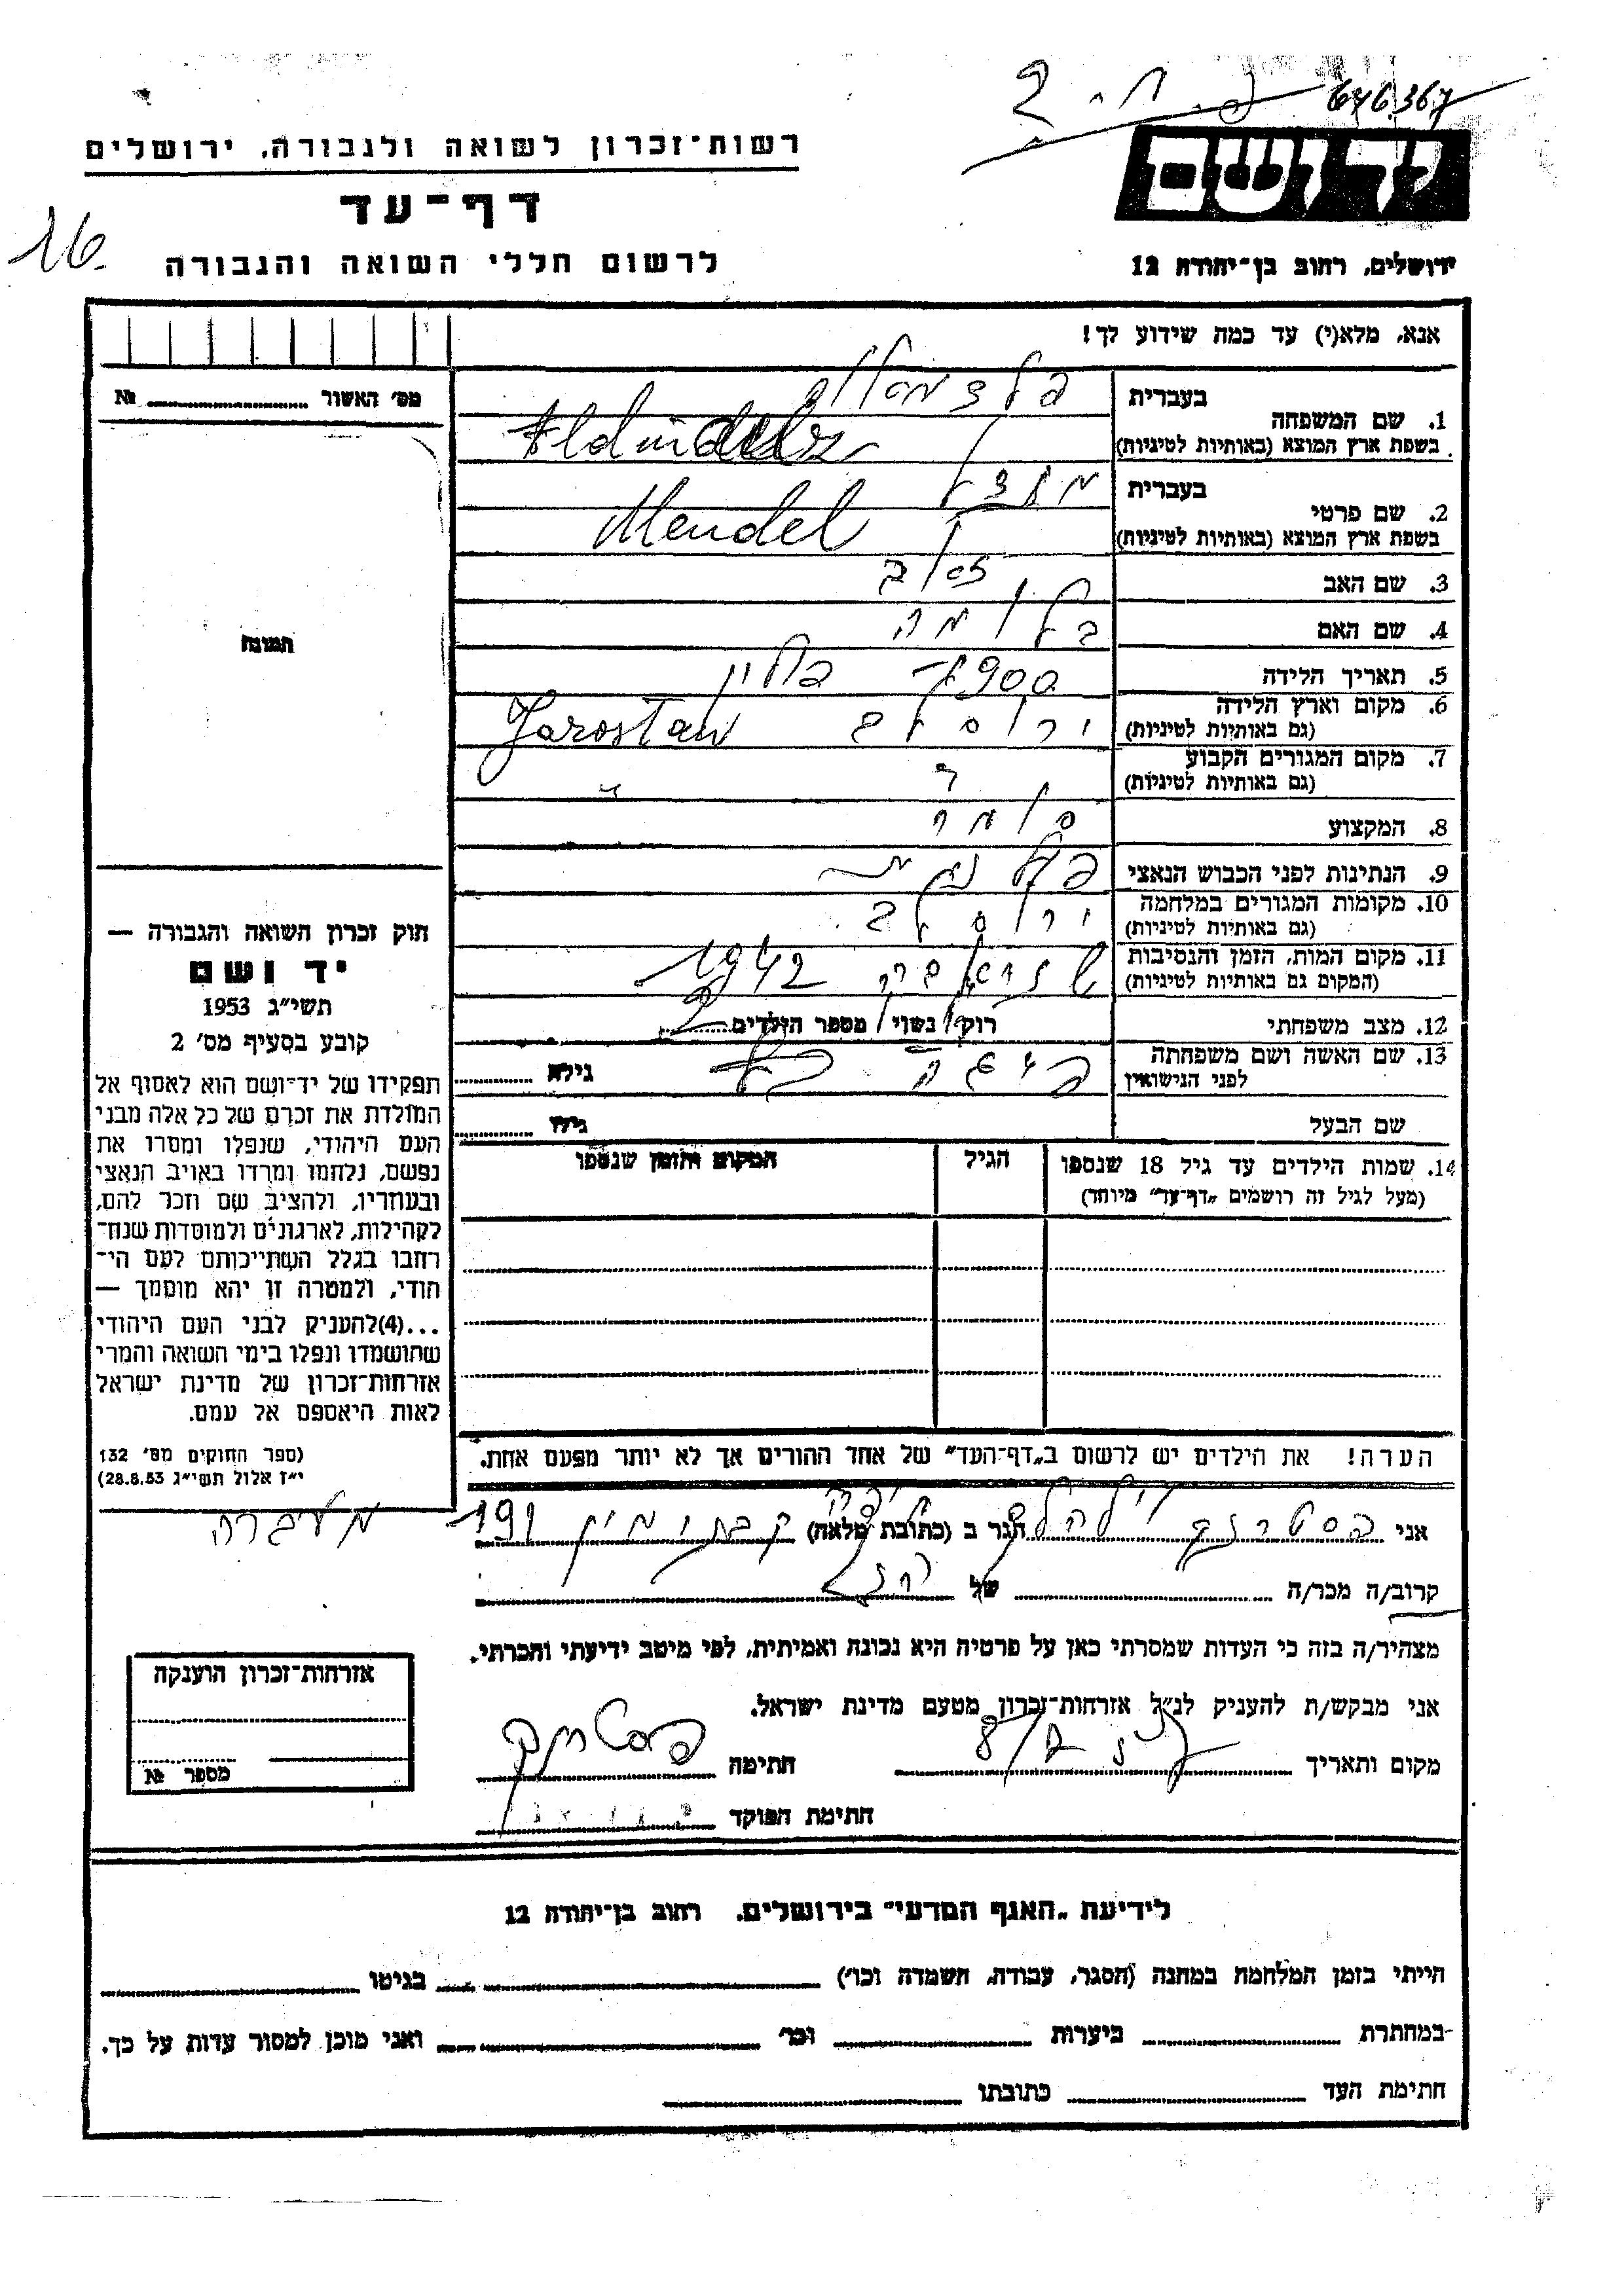 646367
רשות-זכרון לשואה ולגבורה, ירושלים
ידושם
דף-עד
16.
לרשום חללי השואה והגבורה
ירושלים, רחוב בן-יהודה 12
אנא, מלא(י) עד כמה שידוע לך!
מס׳ האשור № 
בעברית
1. שם המשפחה
בשפת ארץ המוצא (באותיות לטיניות)
בעברית מנדל
2. שם פרטי
בשפת ארץ המוצא (באותיות לטיניות) Mendel
3. שם האב
4. שם האם בלומה
תמונה
5. תאריך הלידה 1900 פולין
6. מקום וארץ הלידה ירוסלב Jarostaw
(גם באותיות לטיניות)
7. מקום המגורים הקבוע
(גם באותיות לטיניות)
8. המקצוע סוחר
9. הנתינות לפני הכבוש הנאצי פולנית
10. מקומות המגורים במלחמה ירוסלב
(גם באותיות לטיניות)
11. מקום המות, הזמן והנסיבות 1942
(המקום גם באותיות לטיניות)
12. מצב משפחתי רוק/ נשוי/ מספר הילדים 2
13. שם האשה ושם משפחתה
לפני הנישואין גילא
שם הבעל גילו
14. שמות הילדים עד גיל 18 שנספו הגיל המקום והזמן שנספו
(מעל לגיל זה רושמים „דף-עד״ מיוחד)
חוק זכרון השואה והגבורה —
יד ושם
תשי״ג 1953
קובע בסעיף מס׳ 2
תפקידו של יד-ושם הוא לאסוף אל
המולדת את זכרם של כל אלה מבני
העם היהודי, שנפלו ומסרו את
נפשם, נלחמו ומרדו באויב הנאצי
ובעוזריו, ולהציב שם וזכר להם,
לקהילות, לארגונים ולמוסדות שנח-
רחבו בגלל השתייכותם לעם הי-
חודי, ולמטרה זו יהא מוסמך —
...(4)להעניק לבני העם היהודי
שהושמדו ונפלו בימי השואה והמרי
אזרחות-זכרון של מדינת ישראל
לאות היאספם אל עמם.
(ספר החוקים מס׳ 132
י״ז אלול תשי״ג 28.8.53)
הערה! את הילדים יש לרשום ב„דף-העד״ של אחד ההורים אך לא יותר מפעם אחת.
אני פסטרנק הגר ב (כתובת מלאה) בנימין 191 מעברה
קרוב/ה מכר/ה של הנ״ל
מצהיר/ה בזה כי העדות שמסרתי כאן על פרטיה היא נכונה ואמיתית, לפי מיטב ידיעתי והכרתי.
אני מבקש/ת להעניק לנ״ל אזרחות-זכרון מטעם מדינת ישראל.
מקום ותאריך חתימה פסטרנק
חתימת הפוקד
אזרחות-זכרון הוענקה
מספר №
לידיעת „האגף המדעי״ בירושלים, רחוב בן-יהודה 12
הייתי בזמן המלחמה במחנה (הסגר, עבודה, השמדה וכו׳) בגיטו
במחתרת ביערות וכו׳ ואני מוכן למסור עדות על כך.
חתימת העד כתובתו